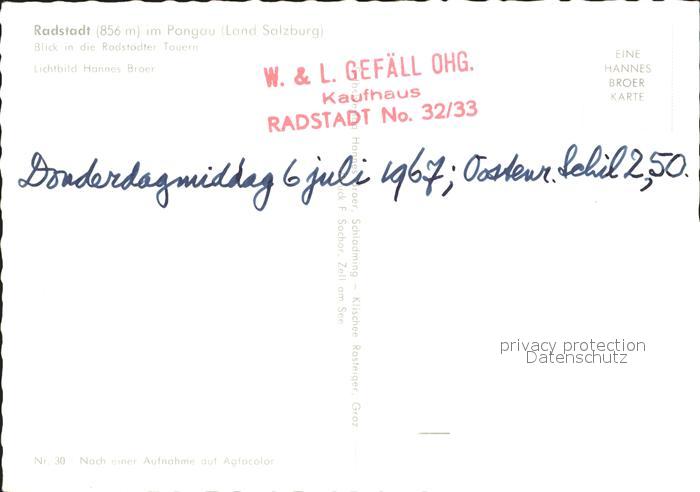 Radstadt (856 m) im Pongau (Land Salzburg)
Blick in die Radstadter Tauern
Lichtbild Hannes Broer
W. & L. GEFÄLL OHG.
Kaufhaus
RADSTADT No. 32/33
EINE
HANNES
BROER
KARTE
Donderdagmiddag 6 juli 1967; Oostenr. Schil 2,50.
Hannes Broer, Schladming – Klischee Rasteiger, Graz
F. Sochor, Zell am See
privacy protection
Datenschutz
Nr. 30 Nach einer Aufnahme auf Agfacolor